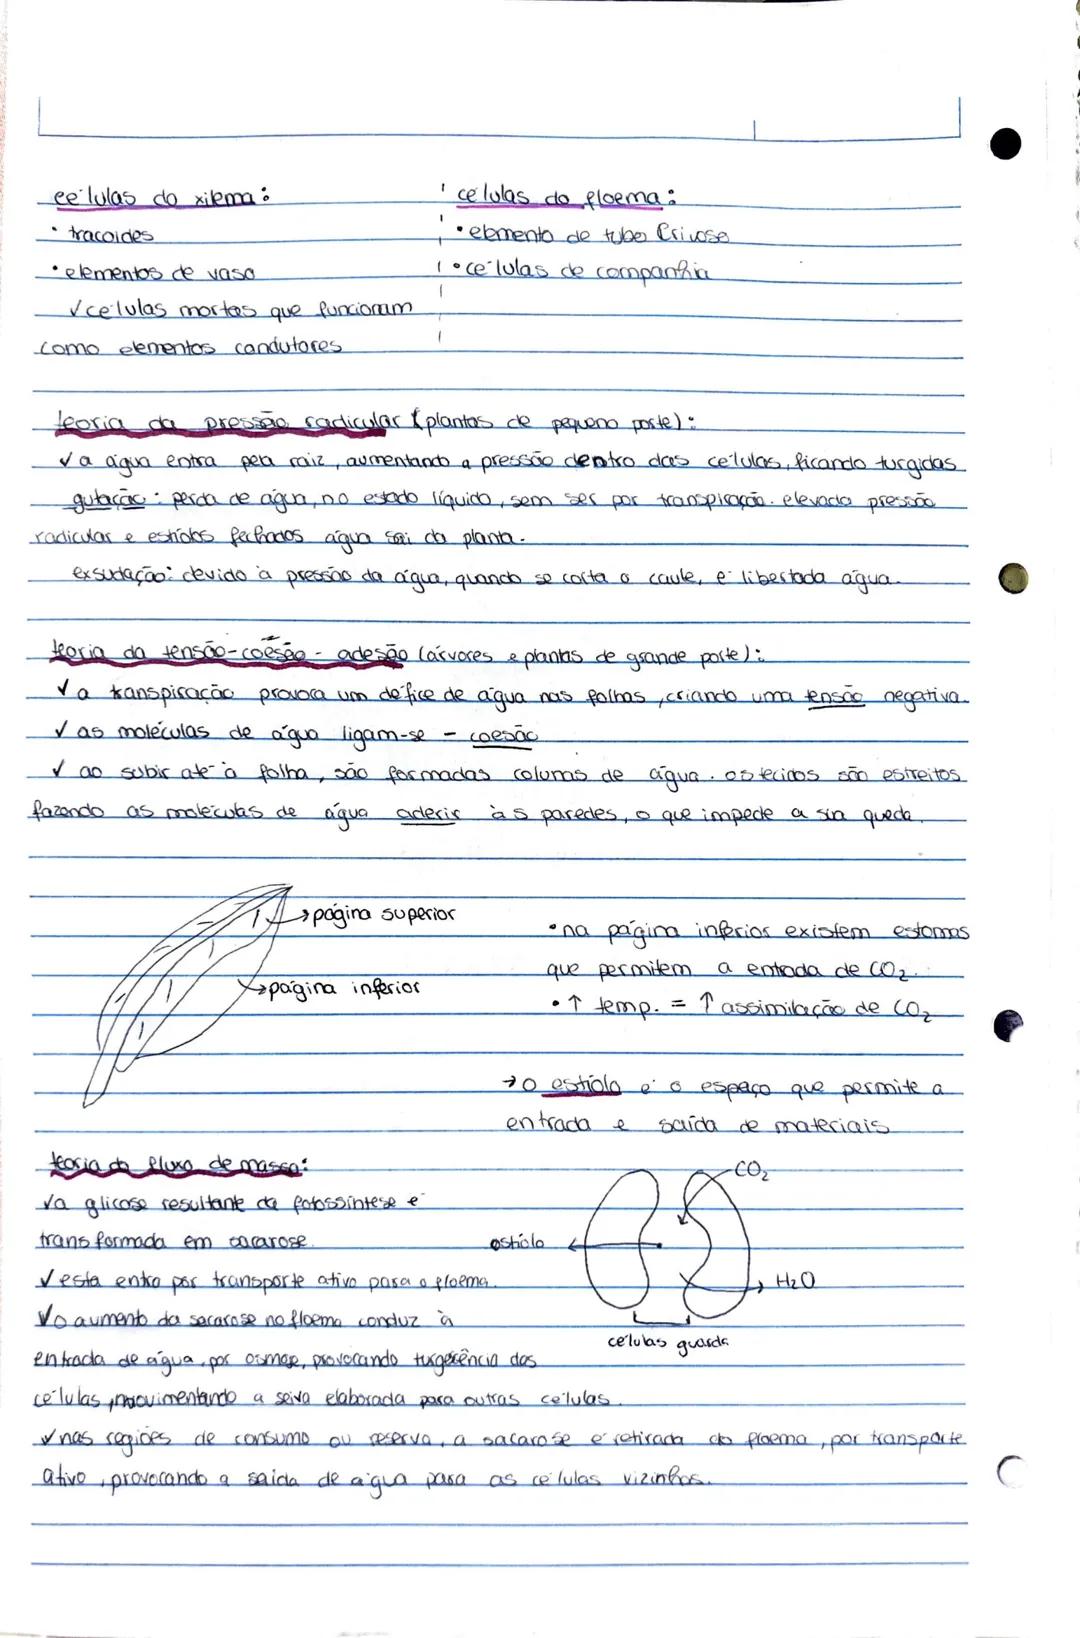 células do xilema:
• tracoides
• elementos de vaso
✓ células mortas que funcionam
como elementos condutores
células do floema:
• elemento de tubo Crivoso
• células de companhia
teoria da pressão radicular (plantas de pequeno porte):
✓ a água entra pela raiz, aumentando a pressão dentro das células, ficando turgidas
gutação: perda de água, no estado líquido, sem ser por transpiração. elevada pressão
radicular e estíolos fechados água sai da planta.
exsudação: devido à pressão da água, quando se corta o caule, é libertada água.
teoria da tensão-coesão - adesão (árvores e plantas de grande porte):
✓ a transpiração provoca um défice de água nas folhas, criando uma tensão negativa.
✓ as moléculas de água ligam-se - coesão
✓ ao subir até à folha, são formadas colunas de água. os tecidos são estreitos
fazendo as moléculas de água aderir às paredes, o que impede a sua queda.
→ página superior
→ página inferior
• na página inferior existem estomas
que permitem a entrada de CO₂.
• ↑ temp. = ↑ assimilação de CO₂
→ o estíolo é o espaço que permite a
entrada e saída de materiais
teoria do fluxo de massa:
✓ a glicose resultante da fotossíntese é
transformada em sacarose.
✓ esta entra por transporte ativo para o floema.
✓ o aumento da sacarose no floema conduz à
entrada de água, por osmose, provocando turgescência das
células, movimentando a seiva elaborada para outras células.
✓ nas regiões de consumo ou reserva, a sacarose é retirada do floema, por transporte
ativo, provocando a saída de água para as células vizinhas.
CO₂
ostíolo
H₂O
células guarda